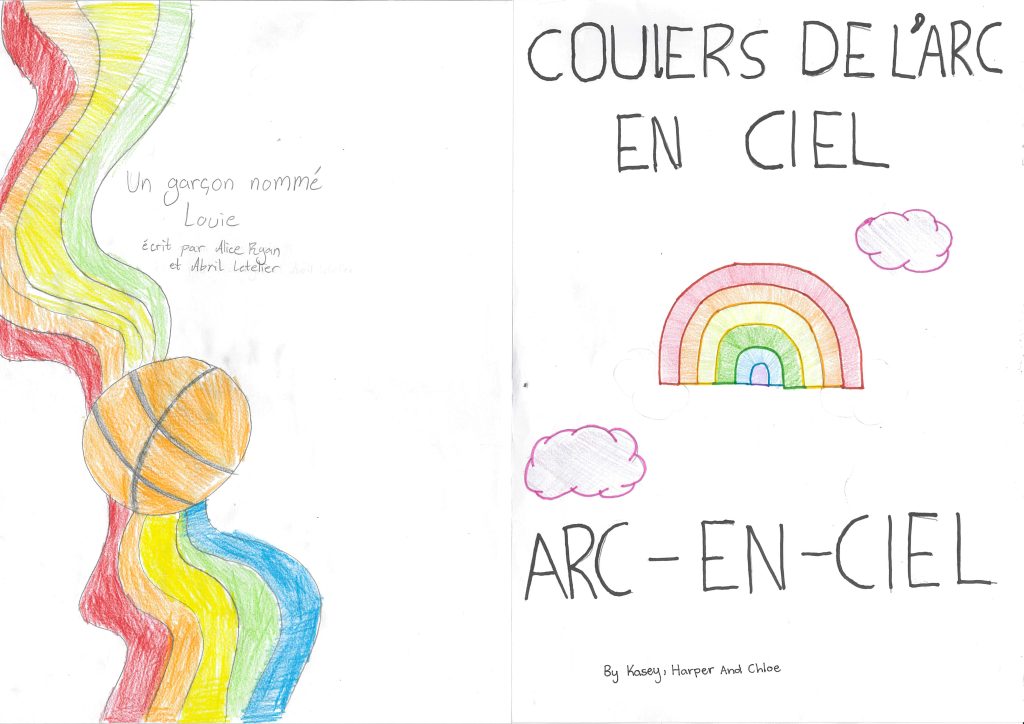 Un garçon nommé
Louie
écrit par Alice Ryan
et Abril Letelier
COULERS DE L'ARC
EN CIEL
ARC-EN-CIEL
By Kasey, Harper And Chloe